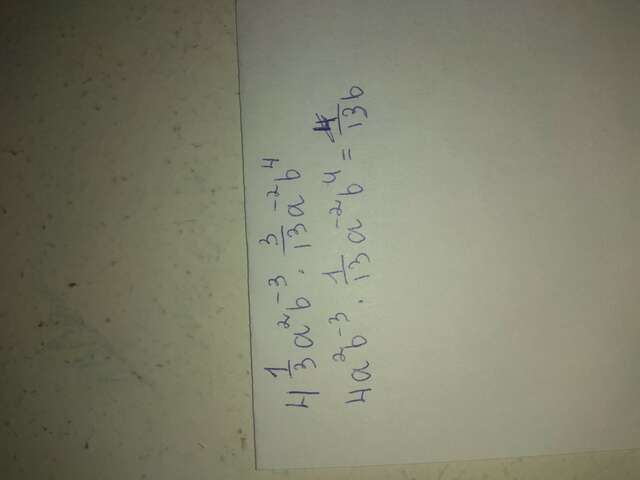 4 1/3 a²b⁻³ · 3/13 a⁻²b⁴
4a²b⁻³ · 1/13 a⁻²b⁴ = 4/13 b